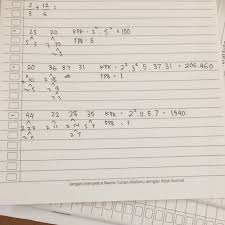 2 + 12 =
3 6
25 20 KPK = 2² . 5² = 100
5 5 2 10 FPB = 5
2 5
20 36 37 31 KPK = 2² . 3² . 5 . 37 . 31 = 206.460
2 10 2 18 FPB = 1
2 5 2 9
3 3
44 22 28 35 KPK = 2² . 11 . 5 . 7 = 1540
2 22 2 11 2 14 5 7 FPB = 1
2 11 2 7
Jangan menyebut Nama Tuhan Allahmu dengan tidak hormat